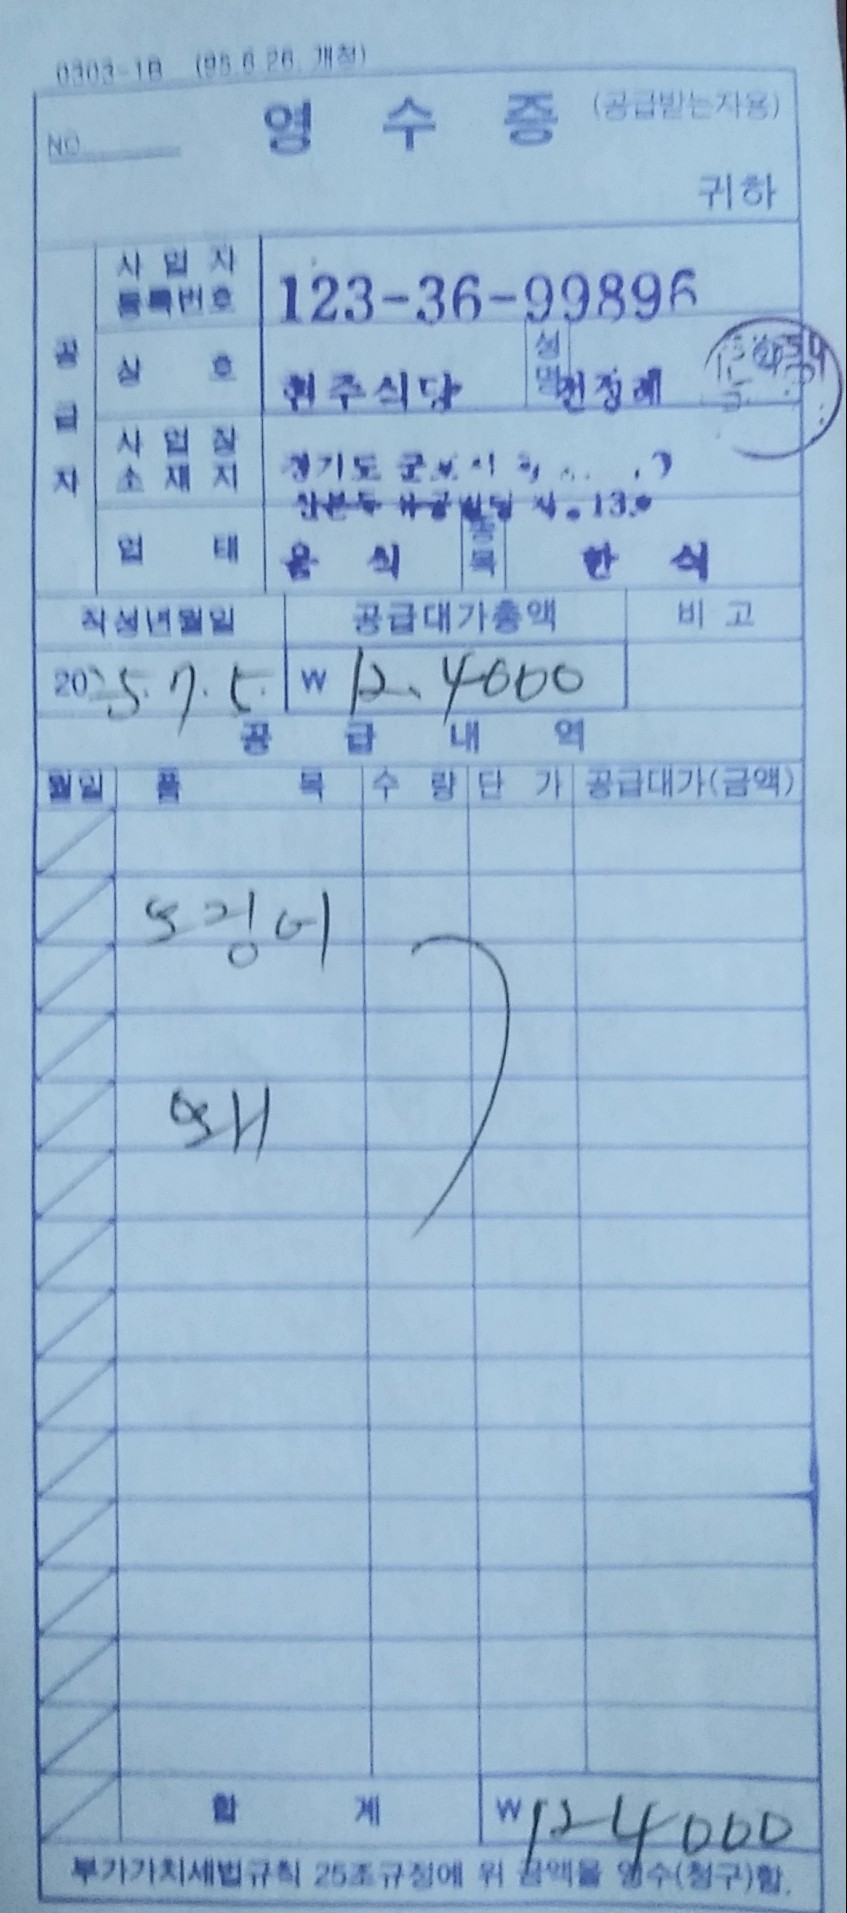 0303-1B (95.6.26. 개정)
NO. 영 수 증 (공급받는자용)
귀하
공급자
사업자등록번호 123-36-99896
상 호 전주식당 성명 전정례
사업장소재지 경기도 군포시
산본동
업 태 음 식 종목 한 식
작성년월일 공급대가총액 비 고
2025. 7. 5. ₩ 12.4000
공 급 내 역
월일 품 목 수 량 단 가 공급대가(금액)
오징어
외
합 계 ₩ 124000
부가가치세법규칙 25조규정에 위 금액을 영수(청구)함.